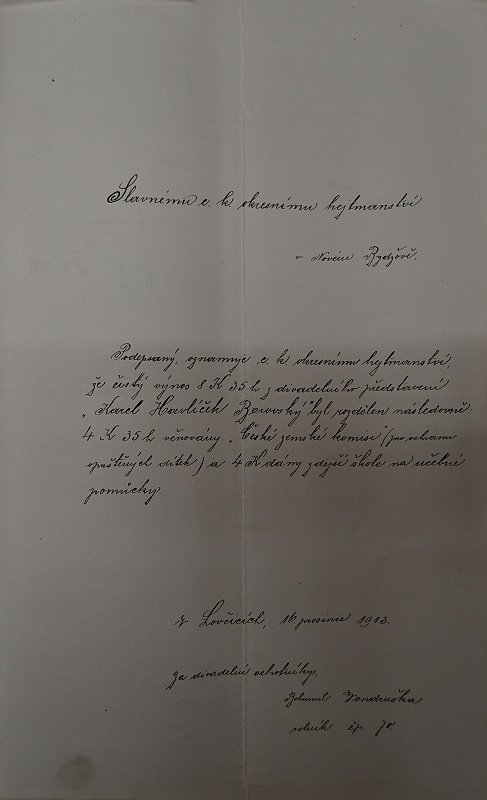 Slavnému c. k. okresnímu hejtmanství
v Novém Bydžově.
Podepsaný, oznamuje c. k. okresnímu hejtmanství,
že čistý výnos 8 K 35 h z divadelního představení
„Karel Havlíček Borovský" byl rozdělen následovně:
4 K 35 h věnovány „České zemské komisi" (pro ochranu
opuštěných dítek) a 4 K dány zdejší škole na učebné
pomůcky.
V Lovčicích, 16 prosince 1913.
Za divadelní ochotníky,
Bohumil Vondruška
rolník čp. 70.